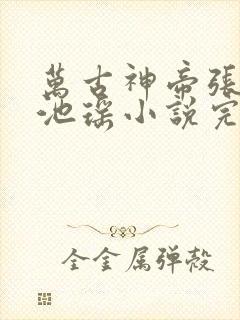 萬古神帝張
池瑤小說完
全金属弹殻